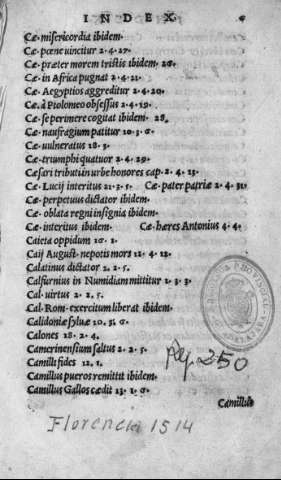 INDEX
Cæ. misericordia ibidem.
Cæ. pœne uincitur 2. 4. 27.
Cæ. præter morem tristis ibidem. 28.
Cæ. in Africa pugnat 2. 4. 21.
Cæ. Aegyptios aggreditur 2. 4. 20.
Cæ. à Ptolomeo obsessus 2. 4. 19.
Cæ. se perimere cogitat ibidem. 28.
Cæ. naufragium patitur 10. 3. 6.
Cæ. uulneratus 18. 3.
Cæ. triumphi quatuor 2. 4. 29.
Cæsari tributi in urbe honores cap. 2. 4. 13.
Cæ. Lucij interitus 21. 3. 5. Cæ. pater patriæ 2. 4. 31.
Cæ. perpetuus dictator ibidem.
Cæ. oblata regni insignia ibidem.
Cæ. interitus ibidem. Cæ. hæres Antonius 4. 4.
Caieta oppidum 16. 1.
Caij August. nepotis mors 11. 4. 12.
Calatinus dictator 2. 2. 5.
Calfurnius in Numidiam mittitur 1. 3. 3
Cal. uirtus 2. 2. 5.
Cal. Rom. exercitum liberat ibidem.
Calidoniæ syluæ 10. 3. 6.
Calones 18. 2. 4.
Camerinensium saltus 2. 2. 5.
Camilli fides 12. 1.
Camillus pueros remittit ibidem.
Camillus Gallos cædit 13. 1. 6.
Camillus
250
Florencia 1514